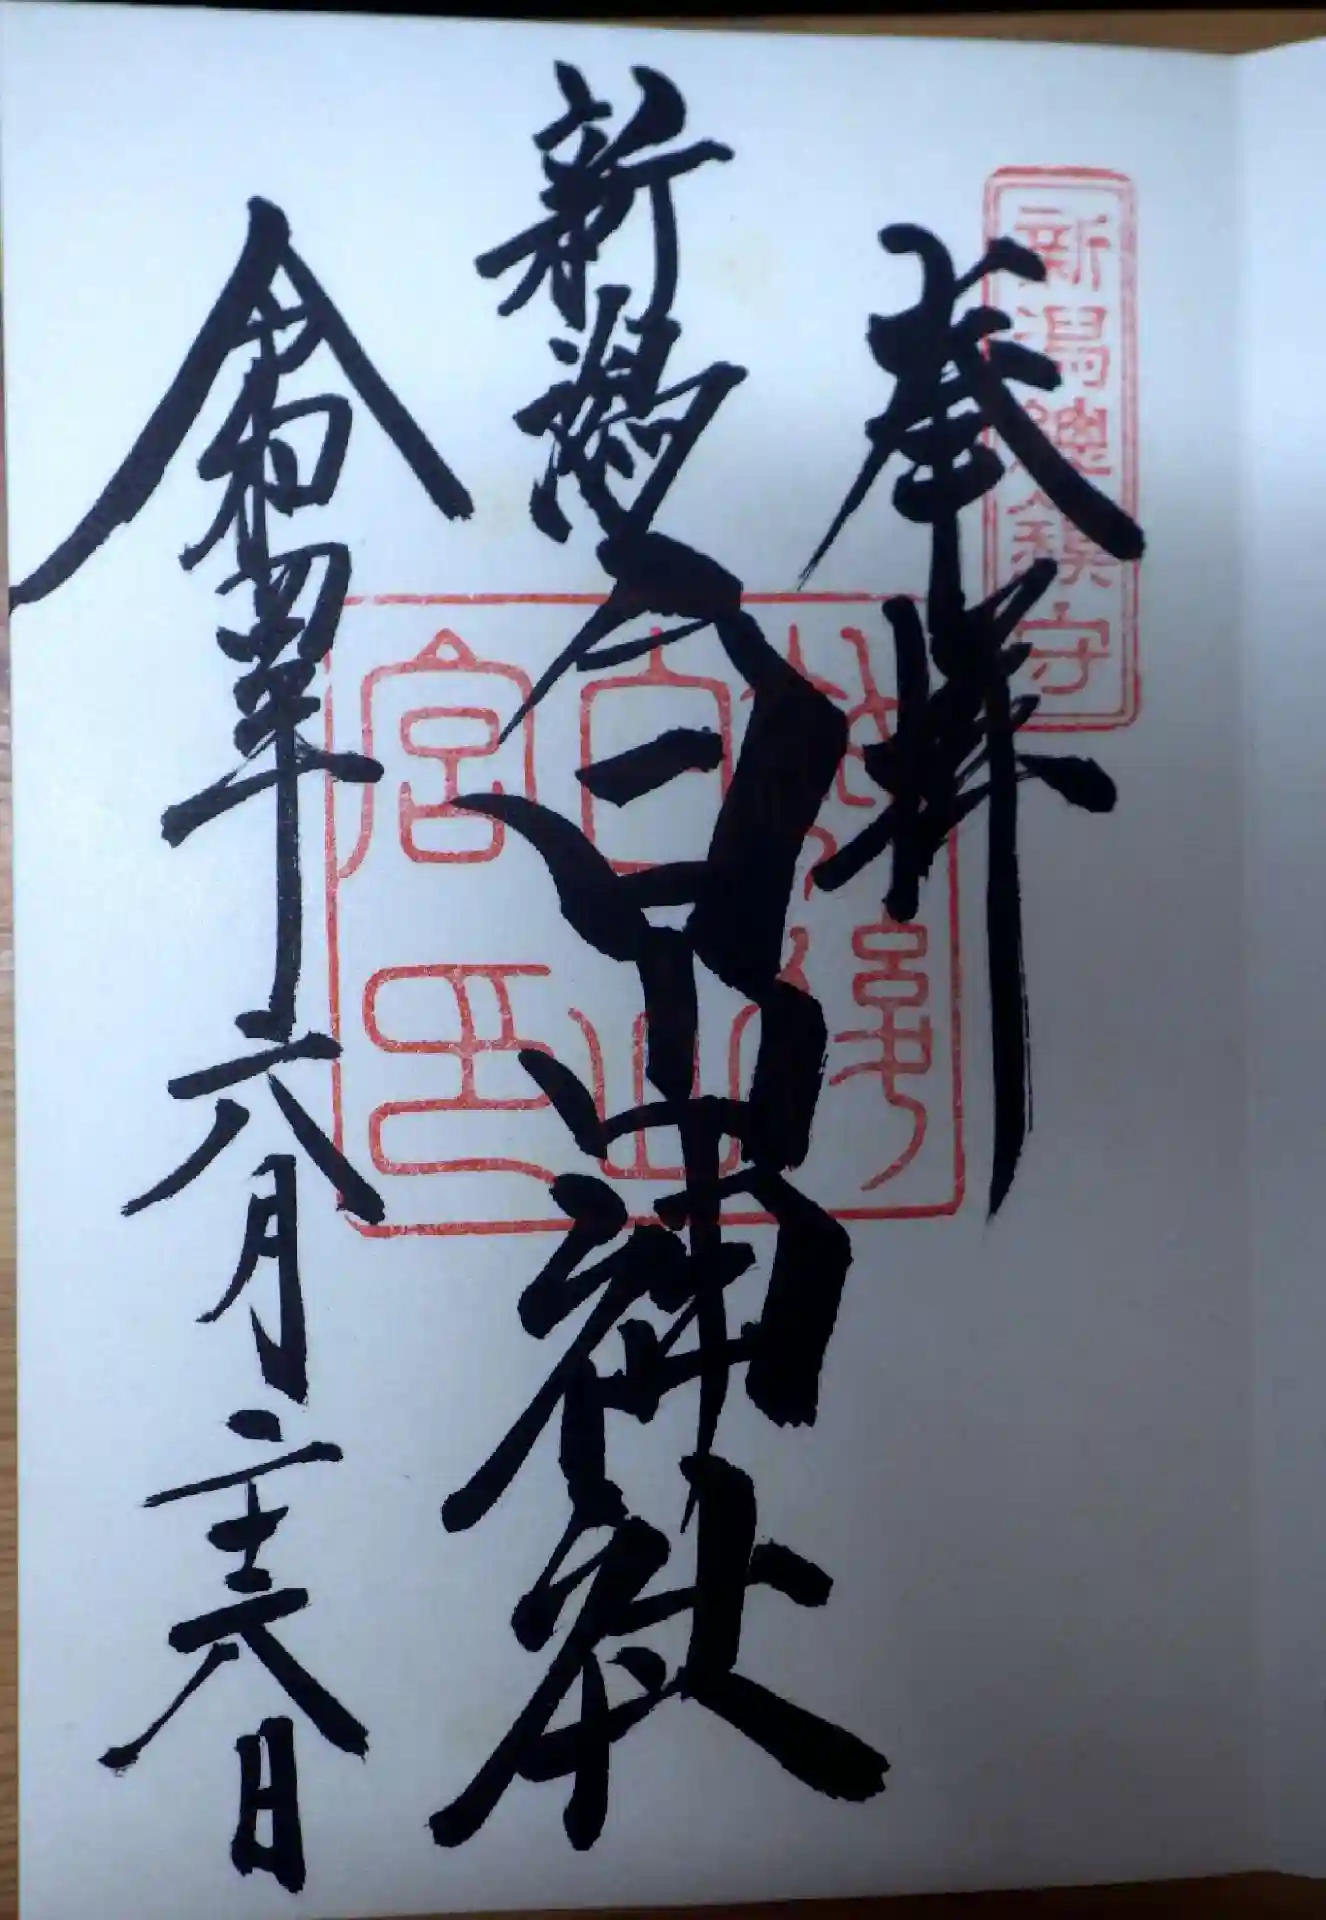 新潟總鎮守
奉拝
新潟白山神社
白山
宮印
令和四年六月二十六日